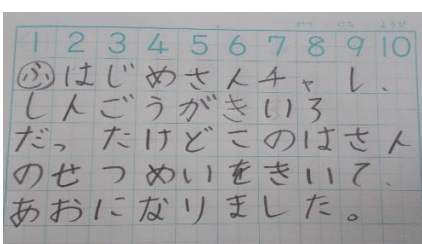 がつ にち ようび
1 2 3 4 5 6 7 8 9 10
ふはじめさんチャし、
しんごうがきいろ
だったけどこのはさん
のせつめいをきいて、
あおになりました。